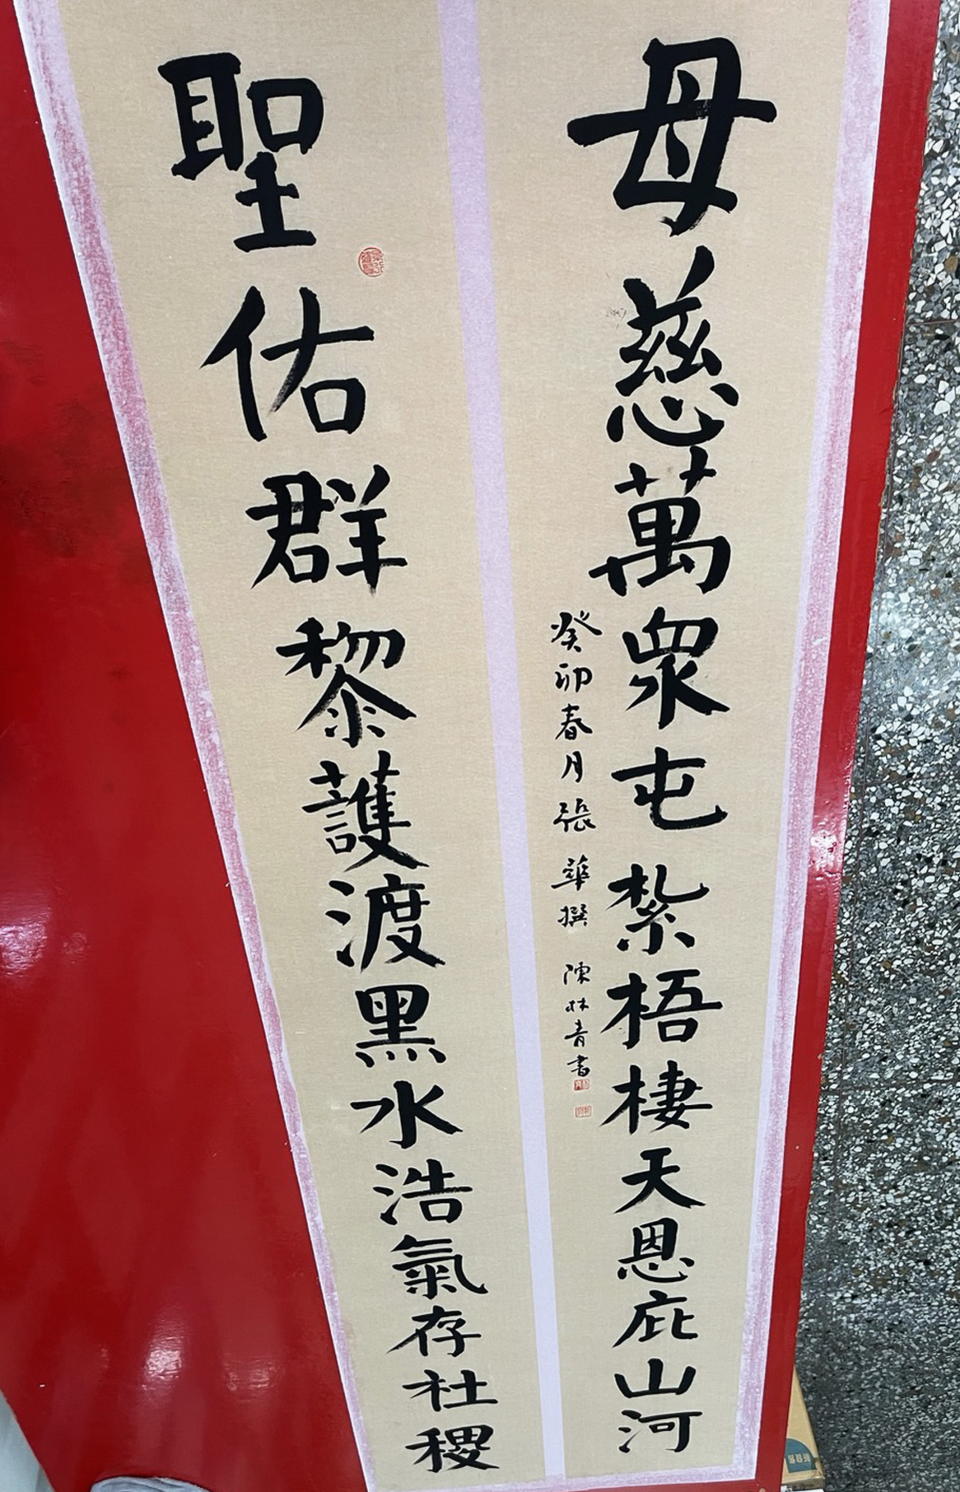 聖佑群黎護渡黑水浩氣存社稷
母慈萬眾屯紮梧棲天恩庇山河
癸卯春月張華撰陳林青書